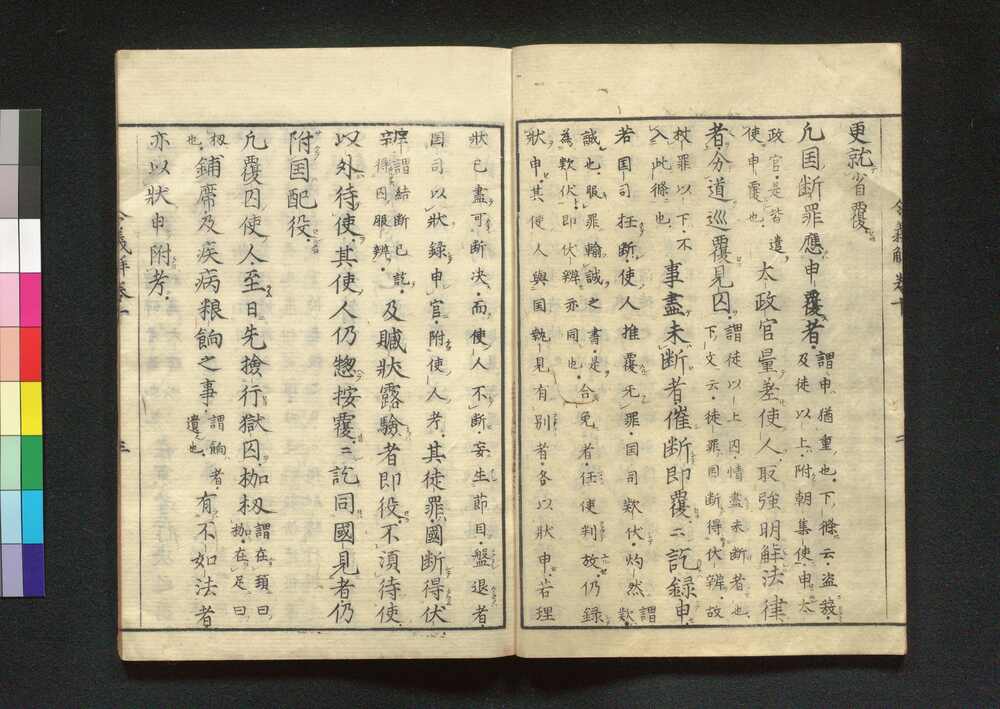 更就省覆
凡国断罪應申覆者謂申猶重也下條云盗殺
及徒以上附朝集使申太
政官是皆遣
使申覆也太政官量差使人取強明解法律
者分道巡覆見囚謂徒以上囚情盡未断者也
下文云徒罪国断得伏辨故
杖罪以下不
入此條也事盡未断者催断即覆二訖録申
若国司枉断使人推覆无罪国司欵伏灼然謂
欵
誠也服罪輸誠之書是
為欵伏即伏辨亦同也合免者任使判放仍録
状申其使人與国執見有別者各以狀申若理
狀已盡可断决而使人不断妄生節目盤退者
国司以狀録申官附使人考其徒罪國断得伏
辨謂結断已訖
得囚服辨及贓狀露驗者即役不湏待使
以外待使其使人仍惣按覆二訖同國見者仍
附国配役
凡覆囚使人至日先撿行獄囚枷杻謂在頚曰
枷在足曰
杻
也鋪席及疾病粮餉之事謂餉者
遺也有不如法者
亦以狀申附考
令義解卷十
二
三